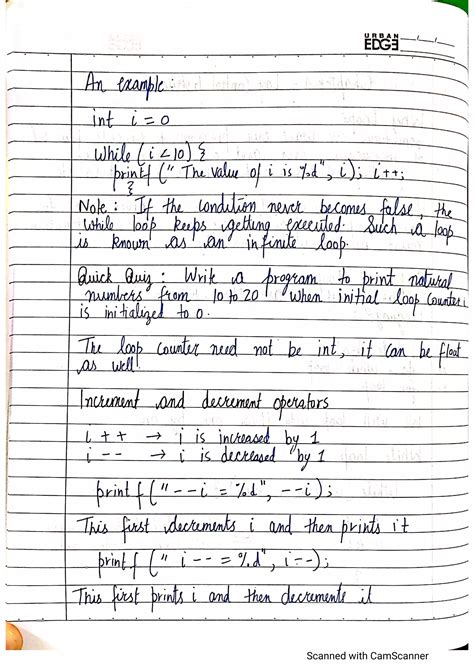 URBAN
EDGE
An example:
int i = 0
while (i < 10) {
printf (" The value of i is %d", i); i++;
}
Note: If the condition never becomes false, the
while loop keeps getting executed. Such a loop
is known as an infinite loop.
Quick Quiz: Write a program to print natural
numbers from 10 to 20 when initial loop counter i
is initialized to 0.
The loop counter need not be int, it can be float
as well
Increment and decrement operators
i + + → i is increased by 1
i - - → i is decreased by 1
printf ("--i = %d", --i);
This first decrements i and then prints it
printf (" i -- = %.d", i--);
This first prints i and then decrements it
Scanned with CamScanner